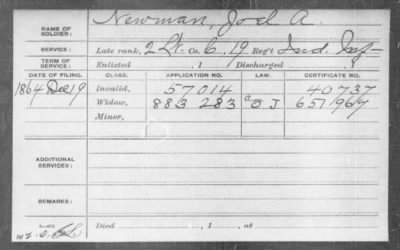 NAME OF SOLDIER: Newman, Joel A.
SERVICE: Late rank, 2 Lt. Co. G, 19 Reg't Ind. Inf.
TERM OF SERVICE: Enlisted , 1 Discharged , 1
DATE OF FILING. CLASS. APPLICATION NO. LAW. CERTIFICATE NO.
1864 Dec 19 Invalid, 57014 40737
Widow, 883 283 O J 651967
Minor,
ADDITIONAL SERVICES:
REMARKS:
Died , 1 , at